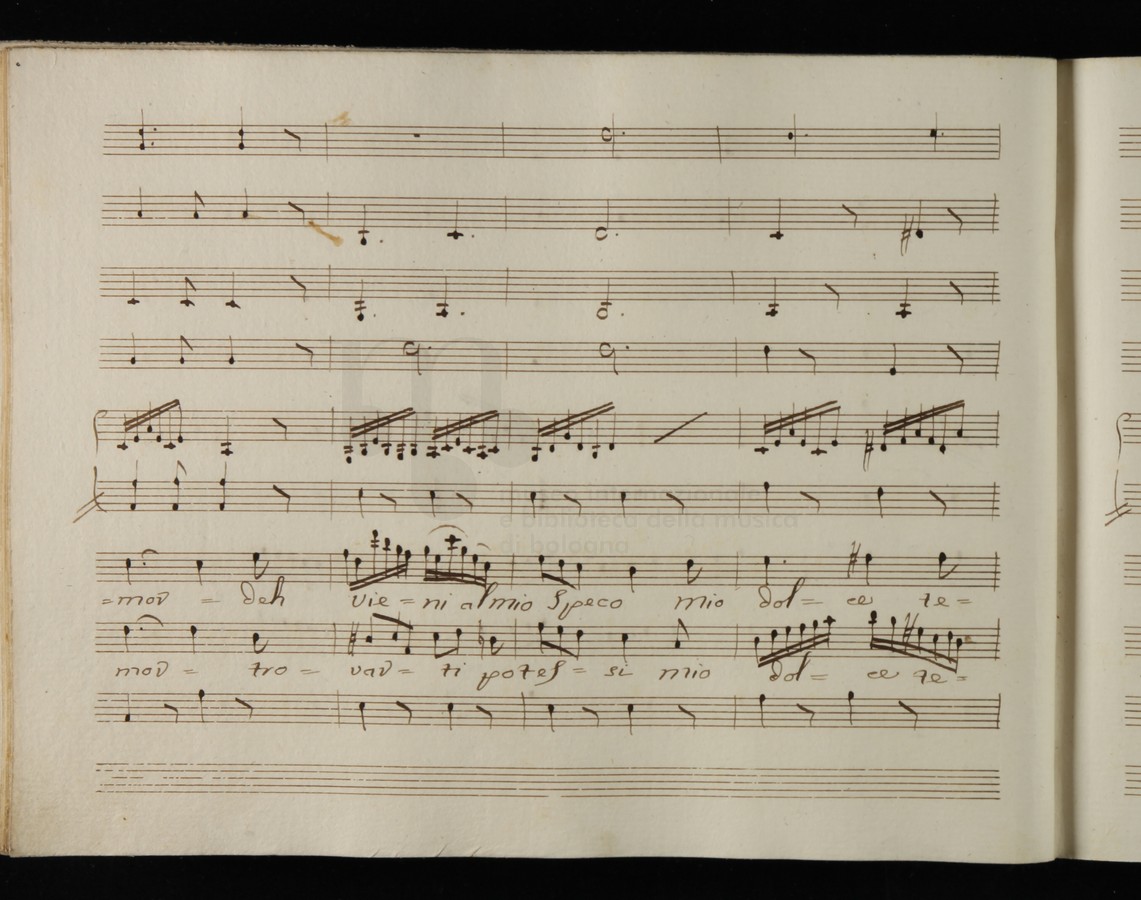 =mor = deh vie = ni al mio Speco mio dol = ce te =
mor = tro = var = ti potes = si mio dol = ce te =
museo internazionale
e biblioteca della musica
di bologna